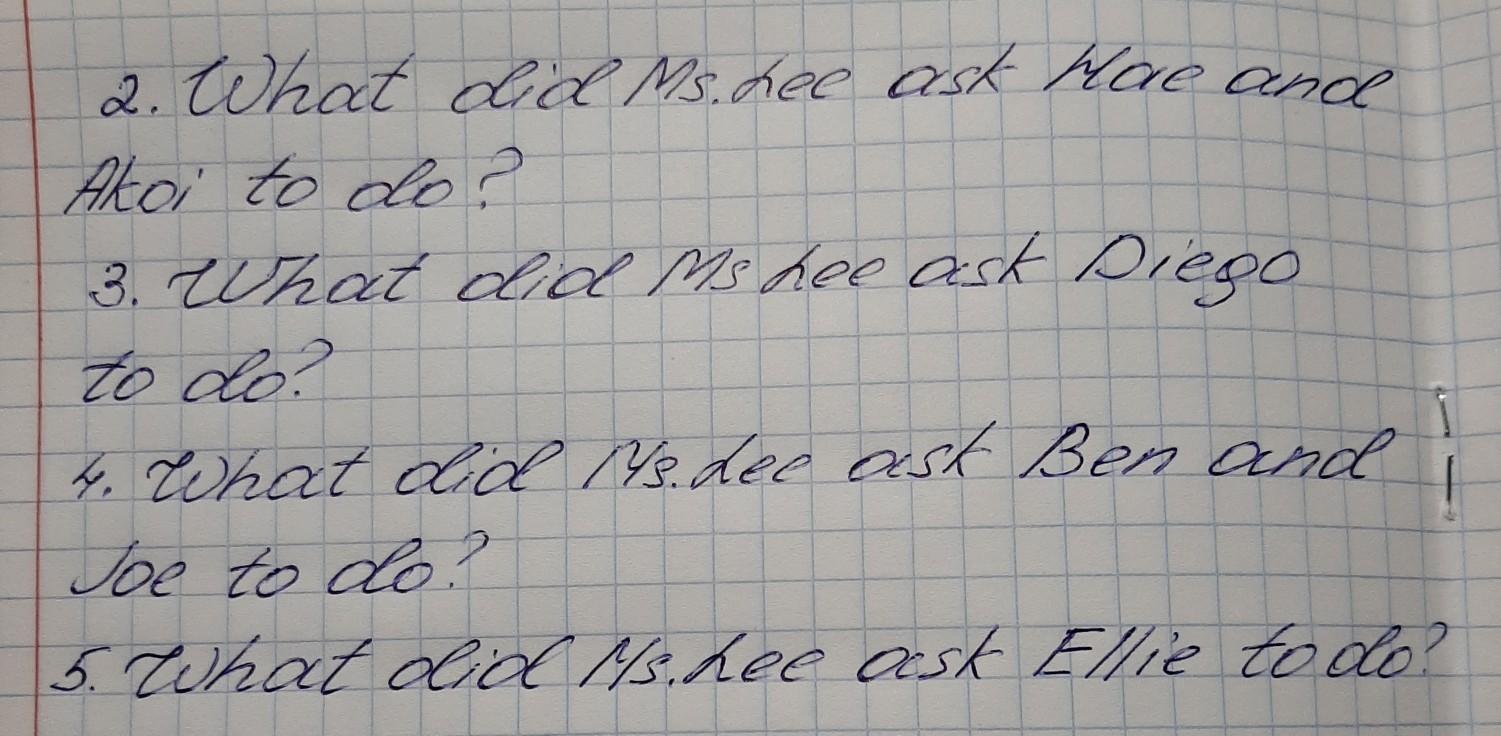 2. What did Ms. Lee ask Mae and
Akoi to do?
3. What did Ms Lee ask Diego
to do?
4. What did Ms. Lee ask Ben and
Joe to do?
5. What did Ms. Lee ask Ellie to do?